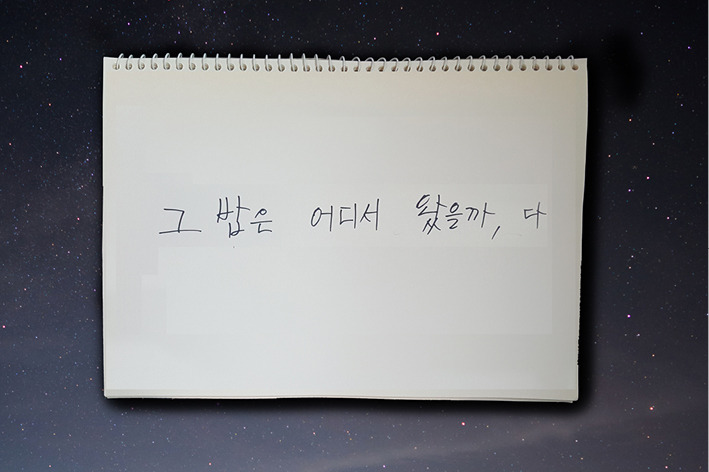 그 밥은 어디서 왔을까, 다